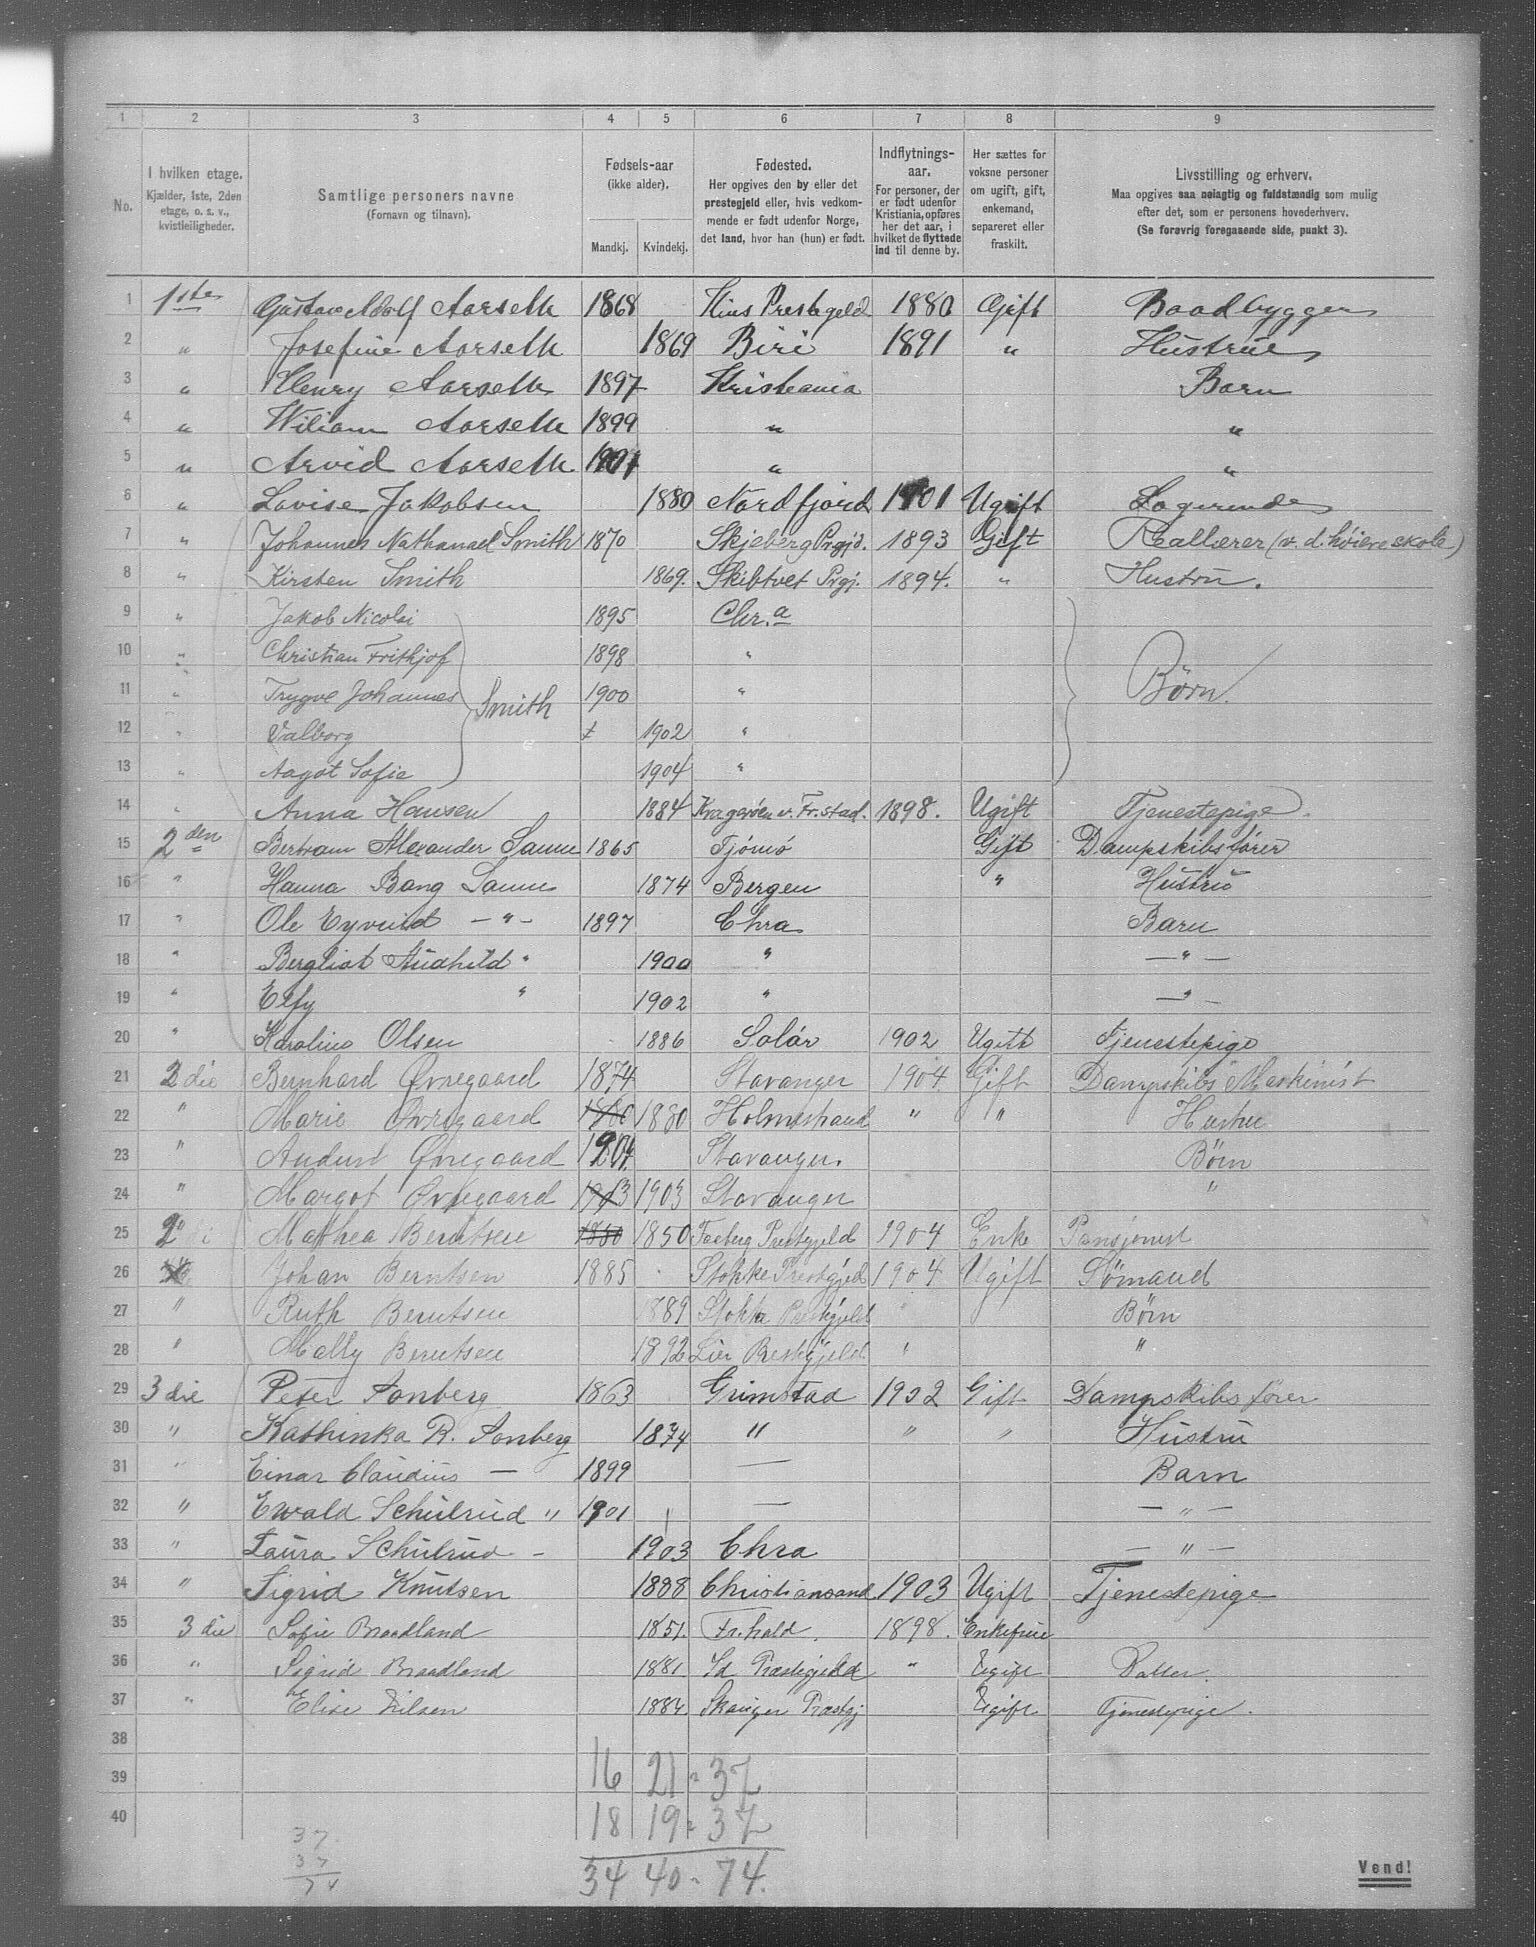 1 2 3 4 5 6 7 8 9
No. I hvilken etage. Kjælder, 1ste, 2den etage, o. s. v., kvistleiligheder. Samtlige personers navne (Fornavn og tilnavn). Fødsels-aar (ikke alder). Mandkj. Kvindekj. Fødested. Her opgives den by eller det prestegjeld eller, hvis vedkommende er født udenfor Norge, det land, hvor han (hun) er født. Indflytnings-aar. For personer, der er født udenfor Kristiania, opføres her det aar, i hvilket de flyttede ind til denne by. Her sættes for voksne personer om ugift, gift, enkemand, separeret eller fraskilt. Livsstilling og erhverv. Maa opgives saa nøiagtig og fuldstændig som mulig efter det, som er personens hovederhverv. (Se forøvrig foregaaende side, punkt 3).
1 1ste Gustav Adolf Aarseth 1868 Kins Prestegeld 1880 Gift Baadbygger
2 " Josefine Aarseth 1869 Biri 1891 " Hustrue
3 " Henry Aarseth 1897 Kristiania Barn
4 " Wiliam Aarseth 1899 " "
5 " Arvid Aarseth 1901 " "
6 " Lovise Jakobsen 1880 Nordfjord 1901 Ugift Logerende
7 " Johannes Nathanael Smith 1870 Skjeberg Prgjd. 1893 Gift Reallærer (v. d. høiere skole)
8 " Kirsten Smith 1869. Skibtvet Prgj. 1894. " Hustru.
9 " Jakob Nicolai 1895 Chr.a
10 " Christian Frithjof 1898 "
11 " Trygve Johannes Smith 1900 " Børn.
12 " Valborg 1902 "
13 " Aagot Sofie 1904 "
14 " Anna Hansen 1884 Kragerøen v. Fr.stad. 1898. Ugift Tjenestepige.
15 2den Bertram Alexander Sanne 1865 Tjømø Gift Dampskibsfører
16 " Hanna Bang Sanne 1874 Bergen " Hustru
17 " Ole Eyvind - " - 1897 Chra Barn
18 " Bergliot Audhild " 1900 " - " -
19 " Elfy " 1902 " - " -
20 " Karoline Olsen 1886 Solør 1902 Ugift Tjenestepige
21 2die Bernhard Øvregaard 1874 Stavanger 1904 Gift Dampskibs Maskinist
22 " Marie Øvregaard 1880 Holmestrand " " Hustru
23 " Øvregaard 1904. Stavanger. Børn
24 " Margot Øvregaard 1903 1903 Stavanger "
25 2di Mathea Berntsen 1850 1850 Faaberg Prestgjeld 1904 Enke Pansjonist
26 Johan Berntsen 1885 Stokke Prestgjeld 1904 Ugift Sømand
27 " Ruth Berntsen 1889 Stokke Prestgjeld " Børn
28 " Mally Berntsen 1892 Lier Prestgjeld " "
29 3die Peter Tonberg 1863 Grimstad 1902 Gift Dampskibsfører
30 " Kathinka R. Tonberg 1874 " " " Hustru
31 " Einar Claudius — 1899 — Barn
32 " Ewald Schulrud " 1901 — - " -
33 " Laura Schulrud - 1903 Chra - " -
34 " Sigrid Knutsen 1888 Christiansand 1903 Ugift Tjenestepige
35 3die Sofie Braadland 1851. Fr.hald. 1898. Enkefrue
36 " Sigrid Braadland 1881. Id Præstegjeld " Ugift Datter.
37 " Elise Nilsen 1884 Skauger Præstgj Ugift Tjenestepige.
38
39 16 21 - 37
40 18 19 - 37
34 40 - 74.
37
37
74
Vend!